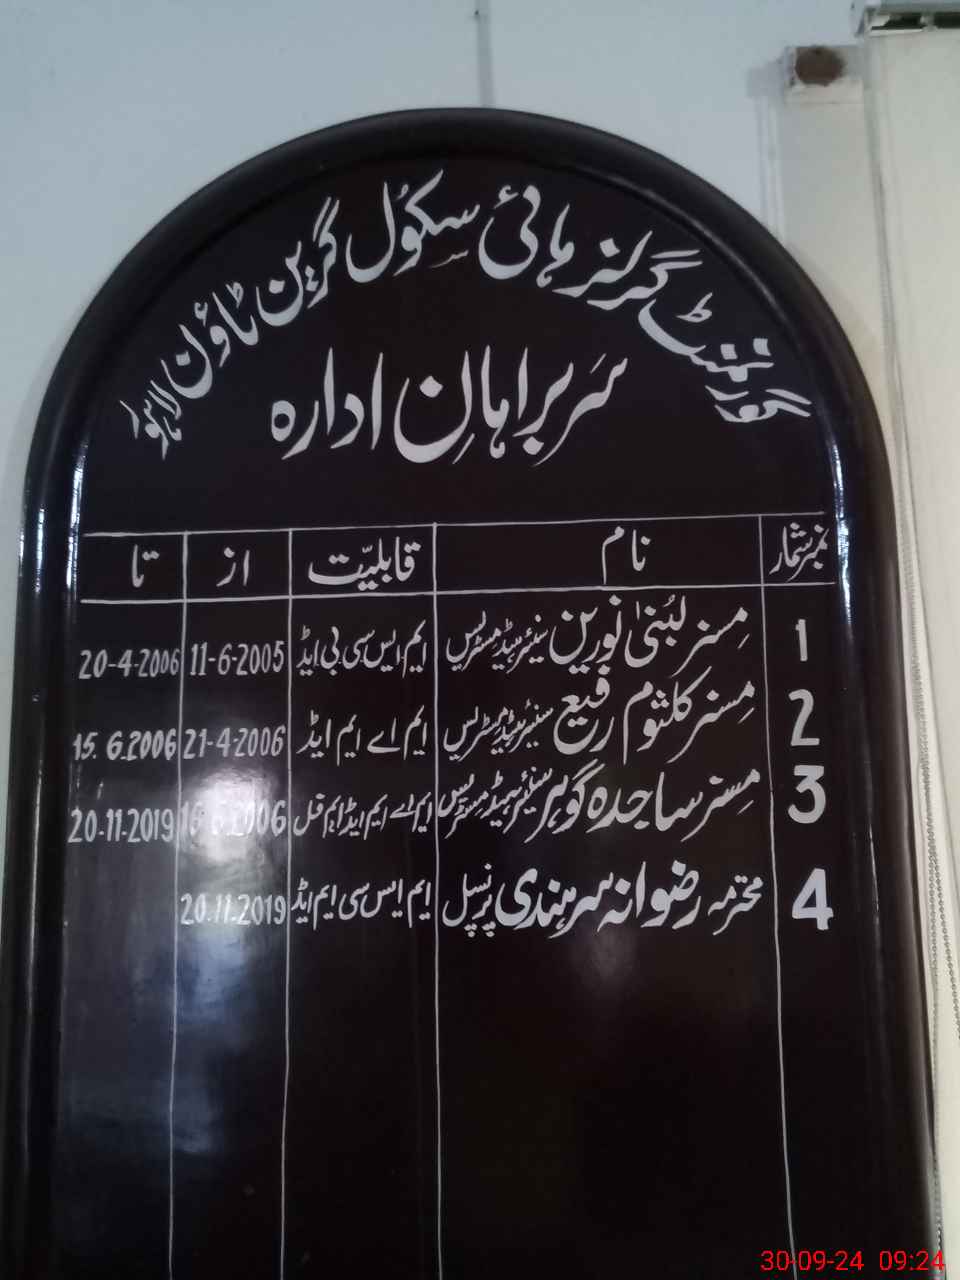 گورنمنٹ گرلز ہائی سکول گرین ٹاؤن لاہور
سربراہانِ ادارہ
نمبر شمار نام قابلیّت از تا
1 مسز لبُنیٰ نورین سینئر ہیڈ مسٹریس ایم ایس سی بی ایڈ 11-6-2005 20-4-2006
2 مسز کلثوم رفیع سینئر ہیڈ مسٹریس ایم اے ایم ایڈ 21-4-2006 15.6.2006
3 مسز ساجدہ گوہر سینئر ہیڈ مسٹریس ایم اے ایم ایڈ ایم فل 20.11.2019
4 محترمہ رضوانہ سرہندی پرنسپل ایم ایس سی ایم ایڈ 20.11.2019
30-09-24 09:24